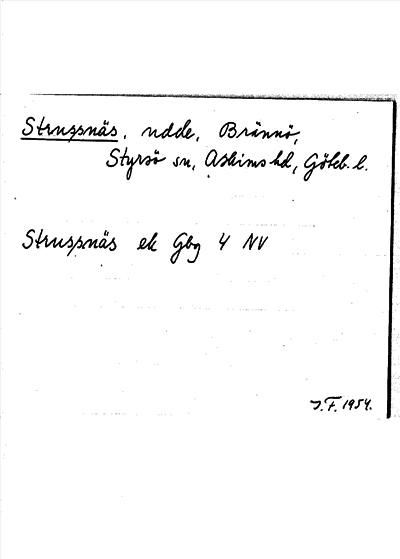 Strupsnäs, udde, Brännö,
Styrsö sn, Askims hd, Göteb. l.
Strupsnäs ek Gbg 4 NV
J.F. 1954.